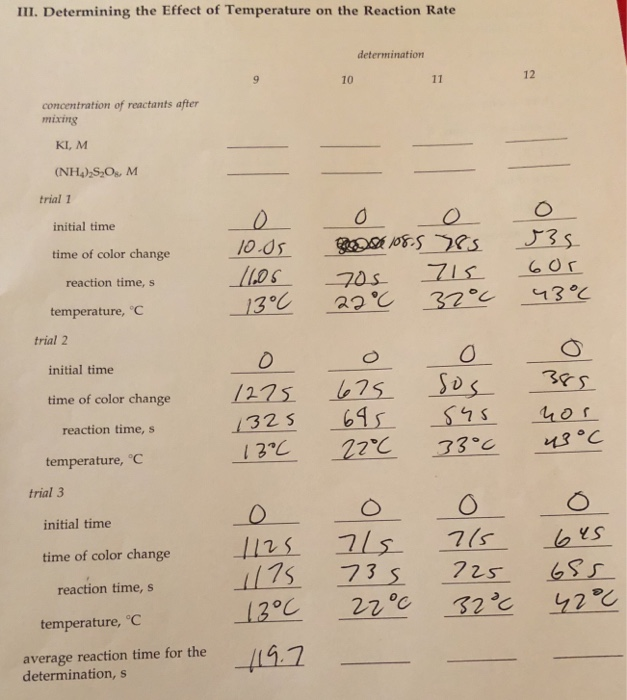 III. Determining the Effect of Temperature on the Reaction Rate
determination
9 10 11 12
concentration of reactants after
mixing
KI, M
(NH₄)₂S₂O₈, M
trial 1
initial time 0 0 0 0
time of color change 10.0s 108.5 78s 53s
reaction time, s 110s 70s 71s 60s
temperature, °C 13°C 22°C 32°C 43°C
trial 2
initial time 0 0 0 0
time of color change 127s 67s 50s 38s
reaction time, s 132s 69s 54s 40s
temperature, °C 13°C 22°C 33°C 43°C
trial 3
initial time 0 0 0 0
time of color change 112s 71s 71s 64s
reaction time, s 117s 73s 72s 68s
temperature, °C 13°C 22°C 32°C 42°C
average reaction time for the
determination, s 119.7